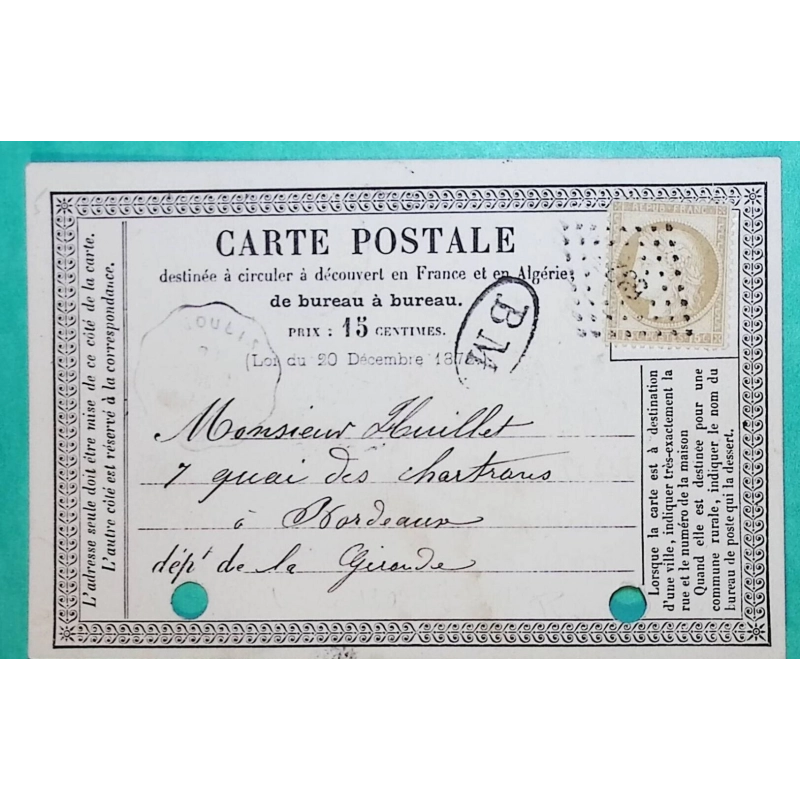 CARTE POSTALE
destinée à circuler à découvert en France et en Algérie
de bureau à bureau.
PRIX : 15 CENTIMES.
(Loi du 20 Décembre 187
BM
REPUB FRANC
Monsieur Huillet
7 quai des chartrons
à Bordeaux
dépt de la Gironde
L'adresse seule doit être mise de ce côté de la carte.
L'autre côté est réservé à la correspondance.
Lorsque la carte est à destination
d'une ville, indiquer très-exactement la
rue et le numéro de la maison
Quand elle est destinée pour une
commune rurale, indiquer le nom du
bureau de poste qui la dessert.